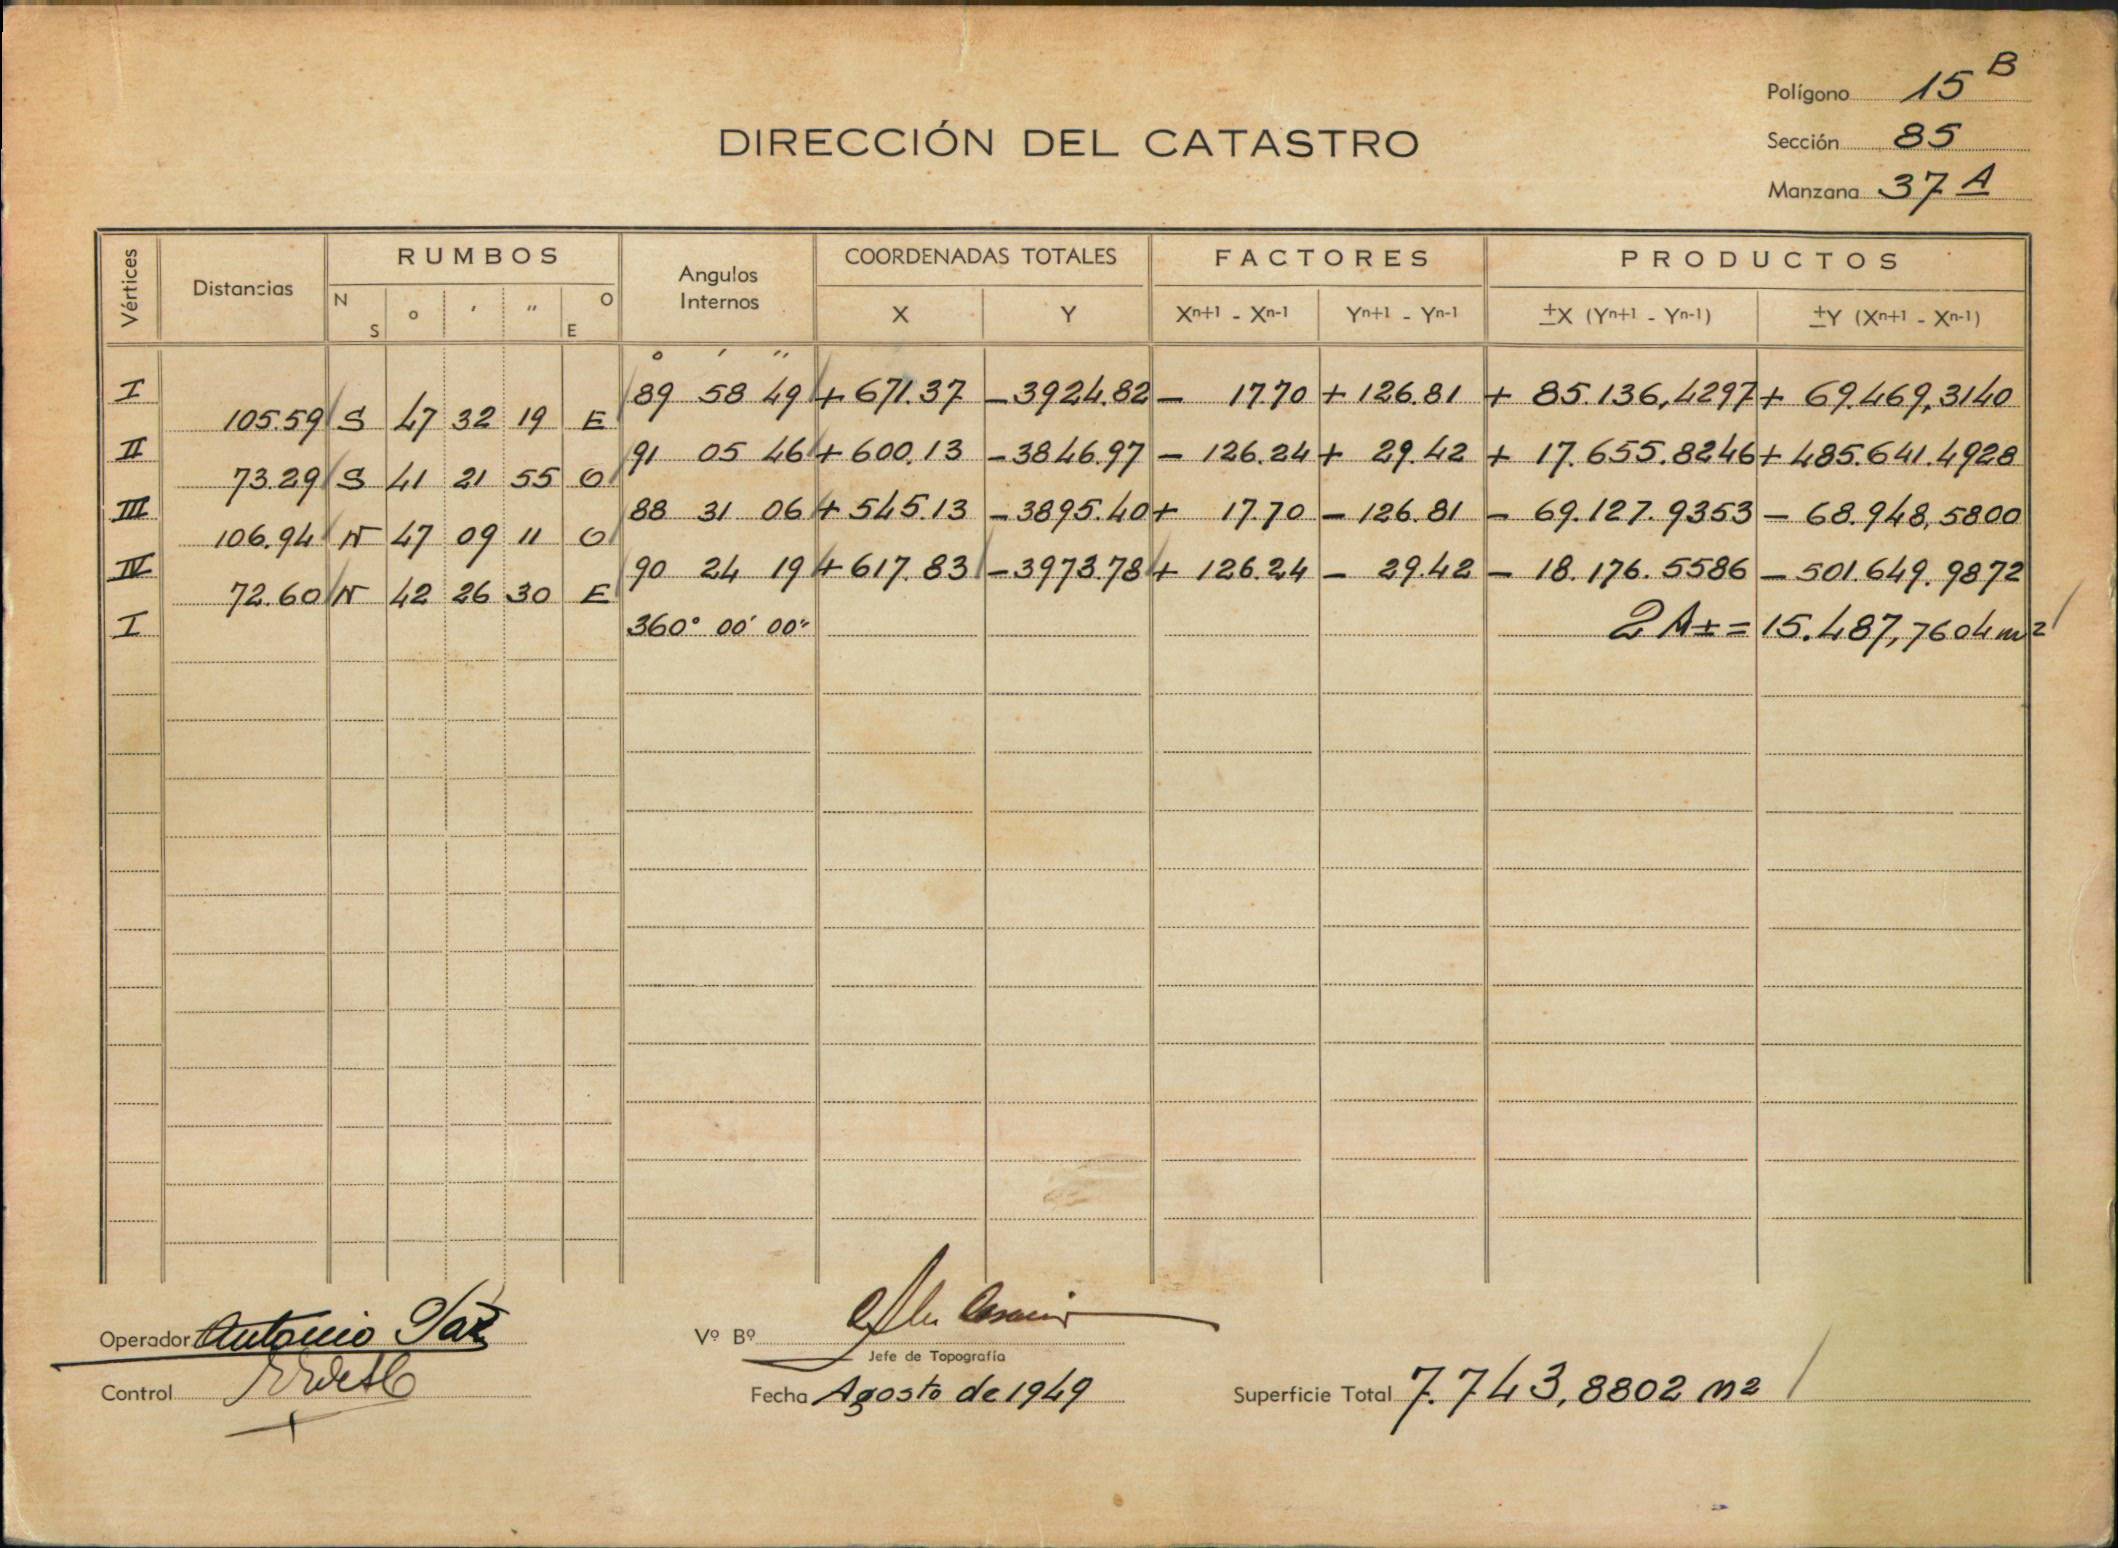 Polígono 15 B
DIRECCIÓN DEL CATASTRO
Sección 85
Manzana 37 A
Vértices Distancias RUMBOS Angulos Internos COORDENADAS TOTALES FACTORES PRODUCTOS
N S o ' " O E X Y Xn+1 - Xn-1 Yn+1 - Yn-1 ±X (Yn+1 - Yn-1) ±Y (Xn+1 - Xn-1)
o ' "
I 89 58 49 + 671.37 - 3924.82 - 17.70 + 126.81 + 85.136,4297 + 69.469,3140
105.59 S 47 32 19 E
II 91 05 46 + 600.13 - 3846.97 - 126.24 + 29.42 + 17.655.8246 + 485.641.4928
73.29 S 41 21 55 O
III 88 31 06 + 545.13 - 3895.40 + 17.70 - 126.81 - 69.127.9353 - 68.948,5800
106.94 N 47 09 11 O
IV 90 24 19 + 617.83 - 3973.78 + 126.24 - 29.42 - 18.176.5586 - 501.649.9872
72.60 N 42 26 30 E
I 360° 00' 00" 2A± = 15.487,7604 m2
Operador Antonio Paz Vº Bº
Jefe de Topografía
Control Fecha Agosto de 1949 Superficie Total 7.743,8802 m2